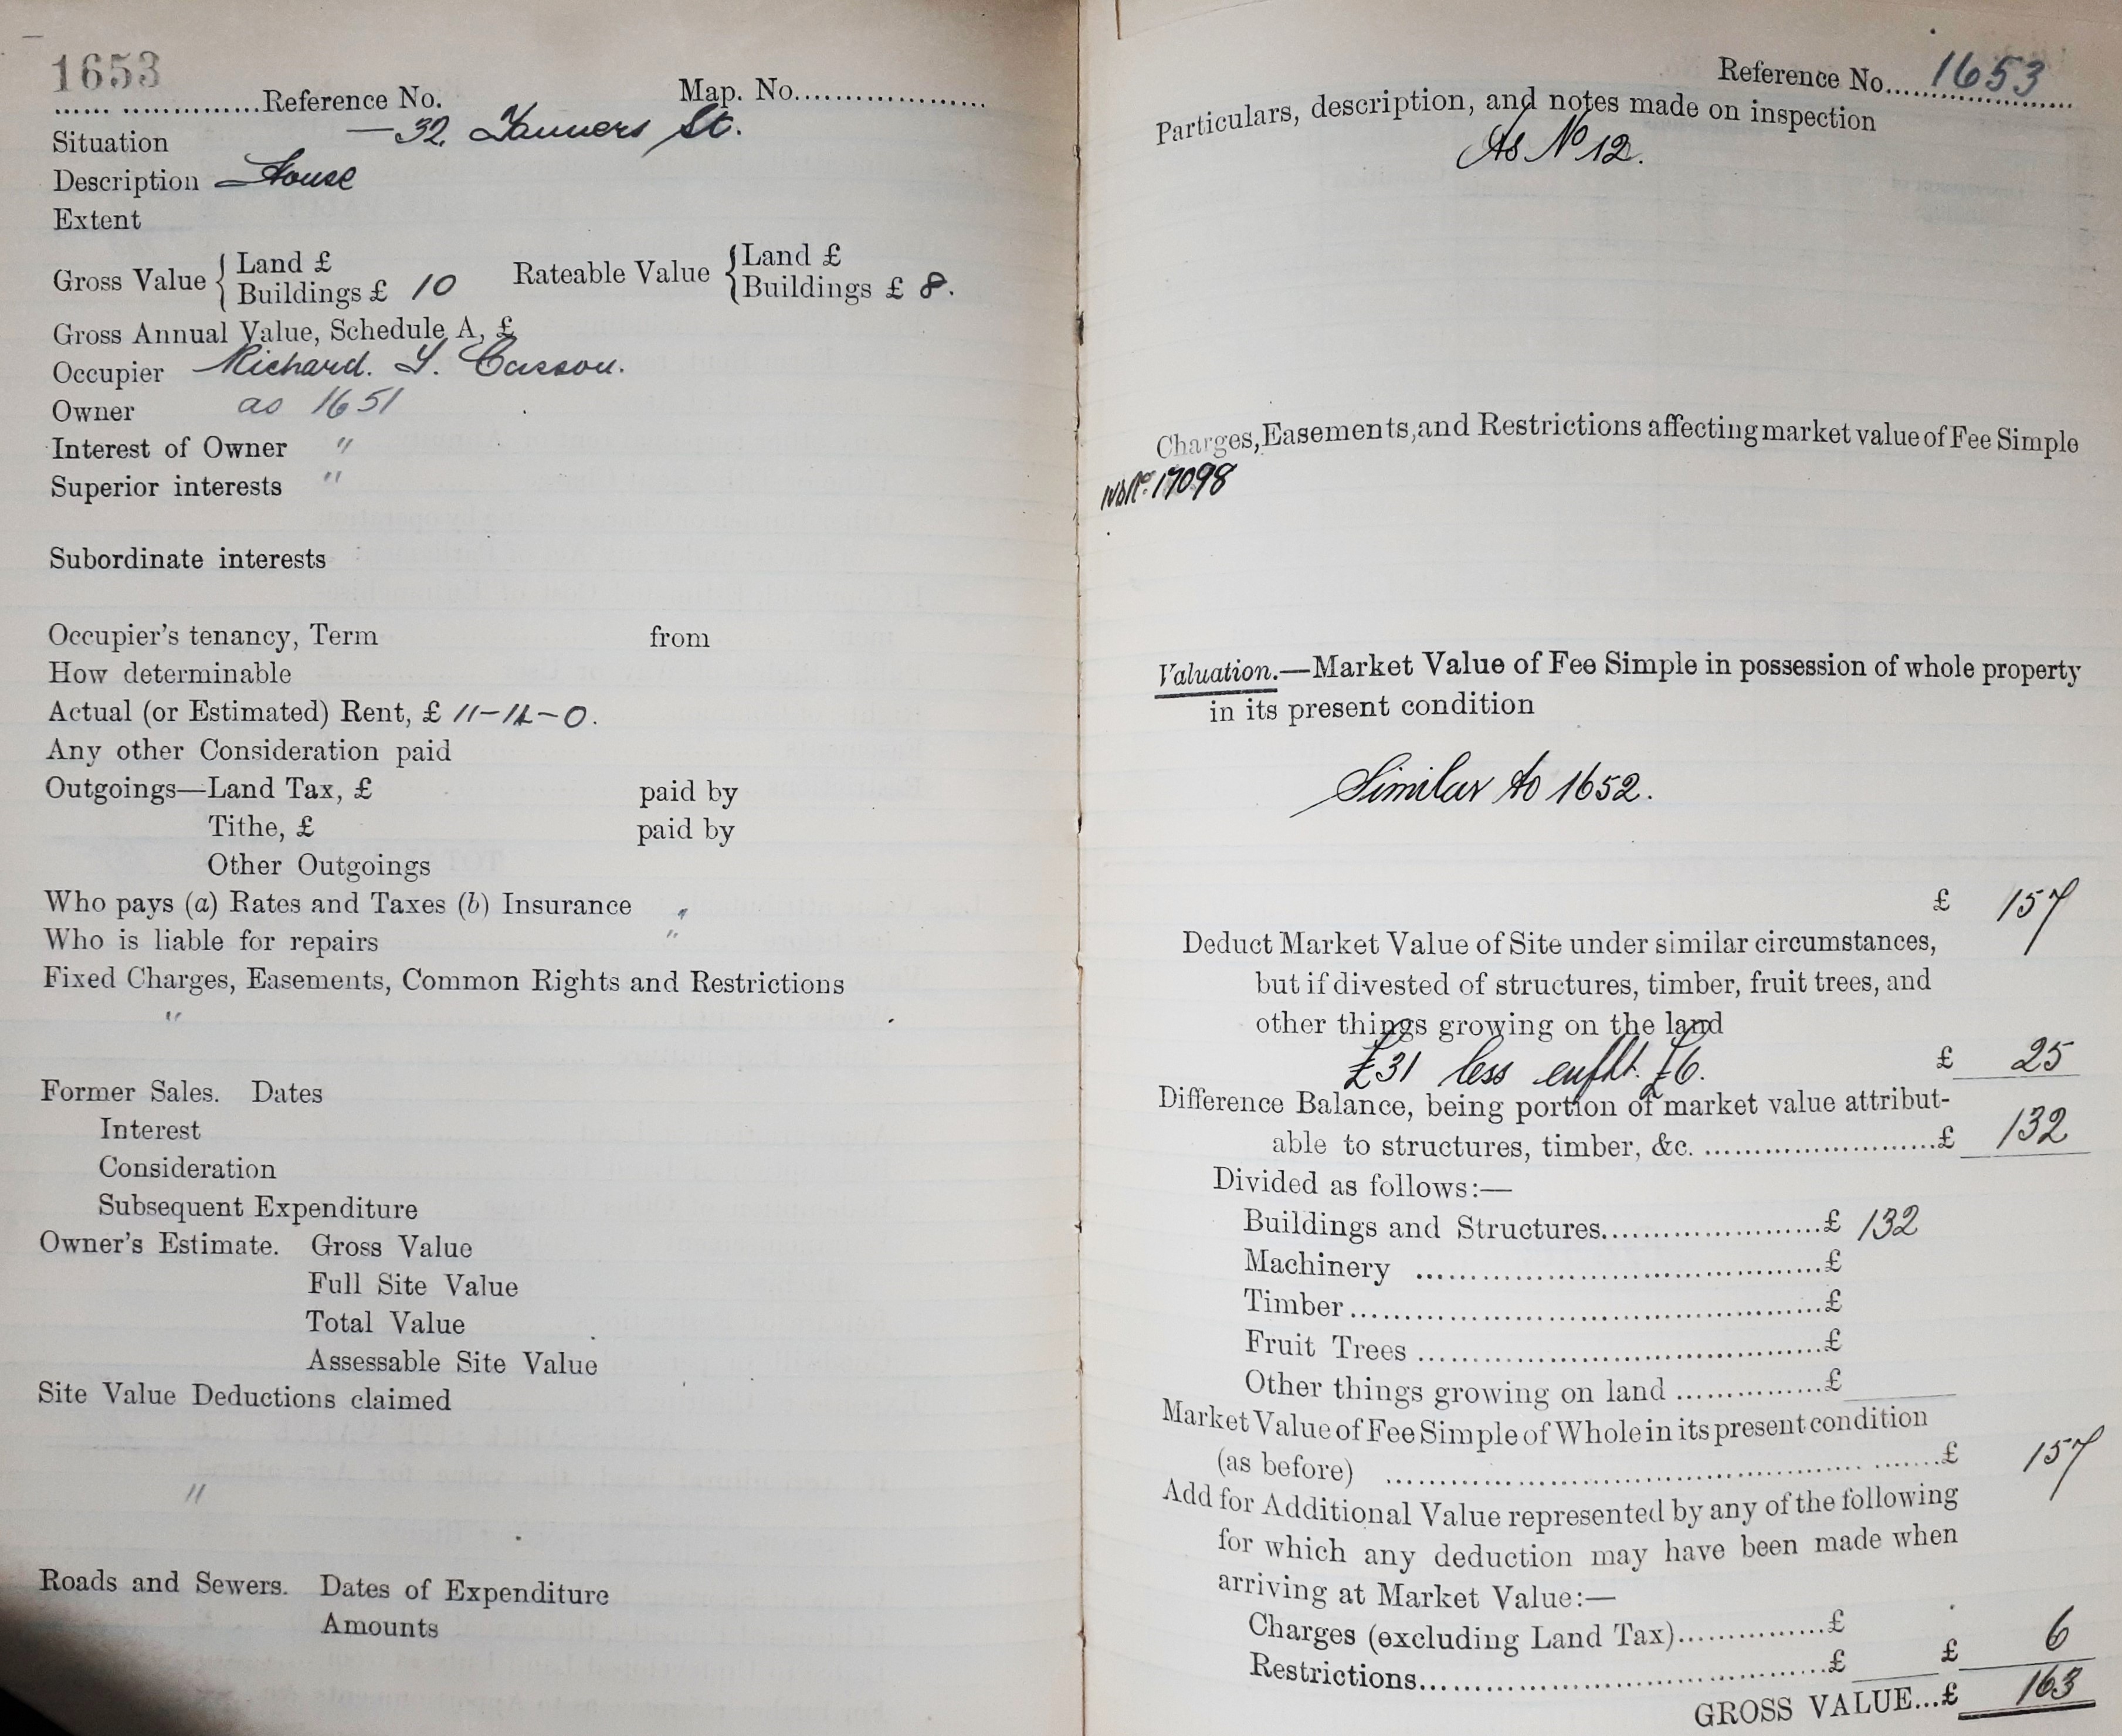 1653
.....................Reference No. Map. No...................
Situation —32, Tanners St.
Description House
Extent
Gross Value { Land £ Rateable Value { Land £
Buildings £ 10 Buildings £ 8.
Gross Annual Value, Schedule A, £
Occupier Richard. Casson.
Owner as 1651
Interest of Owner "
Superior interests "
Subordinate interests
Occupier's tenancy, Term from
How determinable
Actual (or Estimated) Rent, £ 11-14-0.
Any other Consideration paid
Outgoings—Land Tax, £ paid by
Tithe, £ paid by
Other Outgoings
Who pays (a) Rates and Taxes (b) Insurance "
Who is liable for repairs "
Fixed Charges, Easements, Common Rights and Restrictions
"
Former Sales. Dates
Interest
Consideration
Subsequent Expenditure
Owner's Estimate. Gross Value
Full Site Value
Total Value
Assessable Site Value
Site Value Deductions claimed
"
Roads and Sewers. Dates of Expenditure
Amounts
Reference No....1653
Particulars, description, and notes made on inspection
As No 12.
Charges, Easements, and Restrictions affecting market value of Fee Simple
17098
Valuation.—Market Value of Fee Simple in possession of whole property
in its present condition
Similar to 1652.
£ 157
Deduct Market Value of Site under similar circumstances,
but if divested of structures, timber, fruit trees, and
other things growing on the land
£31 less £6. £ 25
Difference Balance, being portion of market value attribut-
able to structures, timber, &c. .......................£ 132
Divided as follows:—
Buildings and Structures.....................£ 132
Machinery .......................................£
Timber..............................................£
Fruit Trees .......................................£
Other things growing on land ..............£
Market Value of Fee Simple of Whole in its present condition
(as before) .......................................................£ 157
Add for Additional Value represented by any of the following
for which any deduction may have been made when
arriving at Market Value:—
Charges (excluding Land Tax)..............£
Restrictions.......................................£ £ 6
GROSS VALUE...£ 163